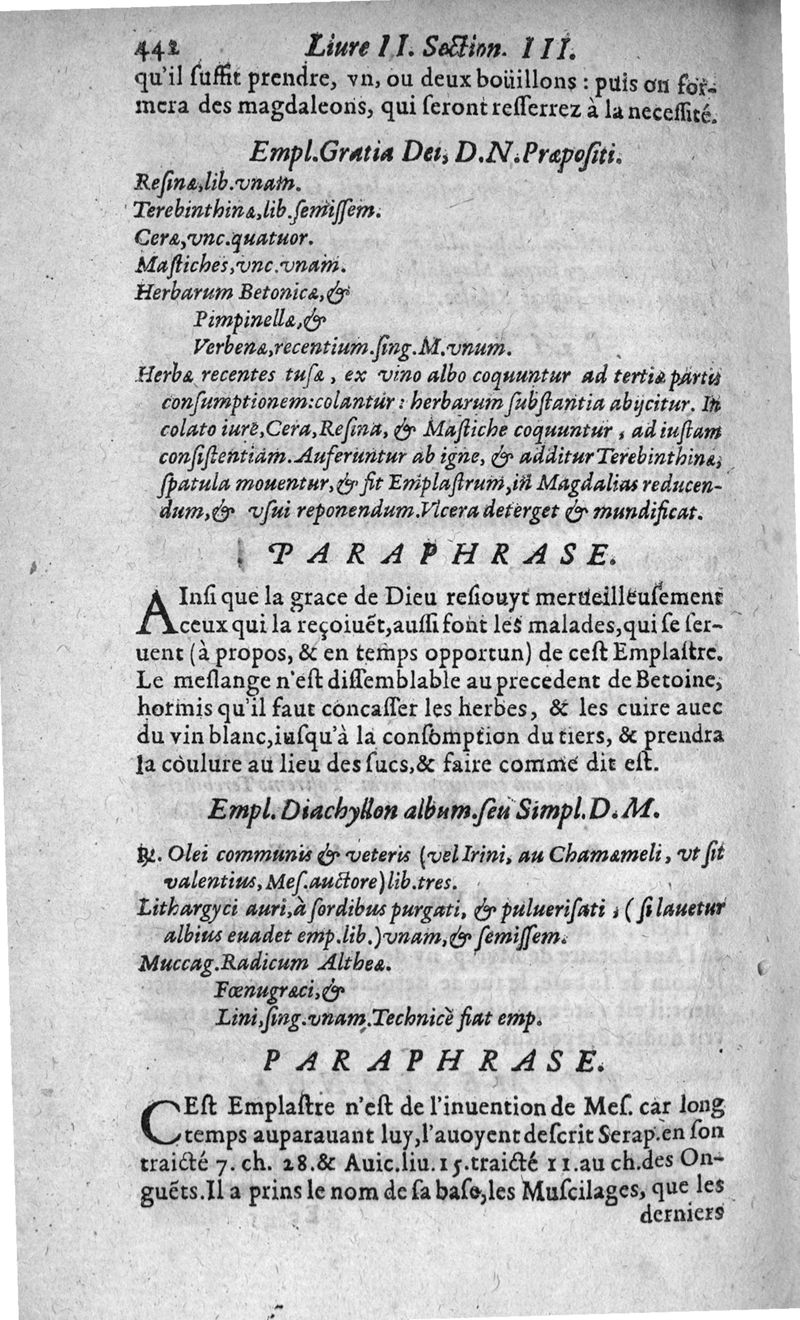 442 Liure II. Section. III.
qu'il suffit prendre, vn, ou deux boüillons : puis on for-
mera des magdaleons, qui seront resserrez à la necessité.
Empl.Gratia Dei, D.N.Præpositi.
Resinæ,lib.vnam.
Terebinthinæ,lib.semissem.
Ceræ,vnc.quatuor.
Mastiches,vnc.vnam.
Herbarum Betonicæ,&
Pimpinellæ,&
Verbenæ,recentium.sing.M.vnum.
Herbæ recentes tusæ , ex vino albo coquuntur ad tertiæ partis
consumptionem:colantur : herbarum substantia abijcitur. In
colato iure,Cera,Resina, & Mastiche coquuntur , ad iustam
consistentiam.Auferuntur ab igne, & additur Terebinthina,
spatula mouentur,& fit Emplastrum,in Magdalias reducen-
dum,& vsui reponendum.Vlcera deterget & mundificat.
PARAPHRASE.
AInsi que la grace de Dieu resiouyt merueilleusement
ceux qui la reçoiuẽt,aussi font les malades,qui se ser-
uent (à propos, & en temps opportun) de cest Emplastre.
Le meslange n'est dissemblable au precedent de Betoine,
hormis qu'il faut concasser les herbes, & les cuire auec
du vin blanc,iusqu'à la consomption du tiers, & prendra
la coulure au lieu des sucs,& faire comme dit est.
Empl. Diachyllon album.seu Simpl.D.M.
℞. Olei communis & veteris (vel Irini, au Chamæmeli, vt sit
valentius, Mes.auctore) lib.tres.
Lithargyci auri,à sordibus purgati, & puluerisati , ( si lauetur
albius euadet emp.lib.)vnam,& semissem.
Muccag.Radicum Altheæ.
Fœnugræci,&
Lini,sing.vnam.Technicè fiat emp.
PARAPHRASE.
CEst Emplastre n'est de l'inuention de Mes. car long
temps auparauant luy,l'auoyent descrit Serap.en son
traicté 7. ch. 28.& Auic.liu.15.traicté 11.au ch.des On-
guẽts.Il a prins le nom de sa base,les Muscilages, que les
derniers